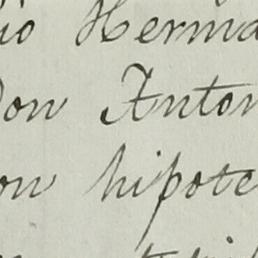 io Herma
Don Anton
on hipote